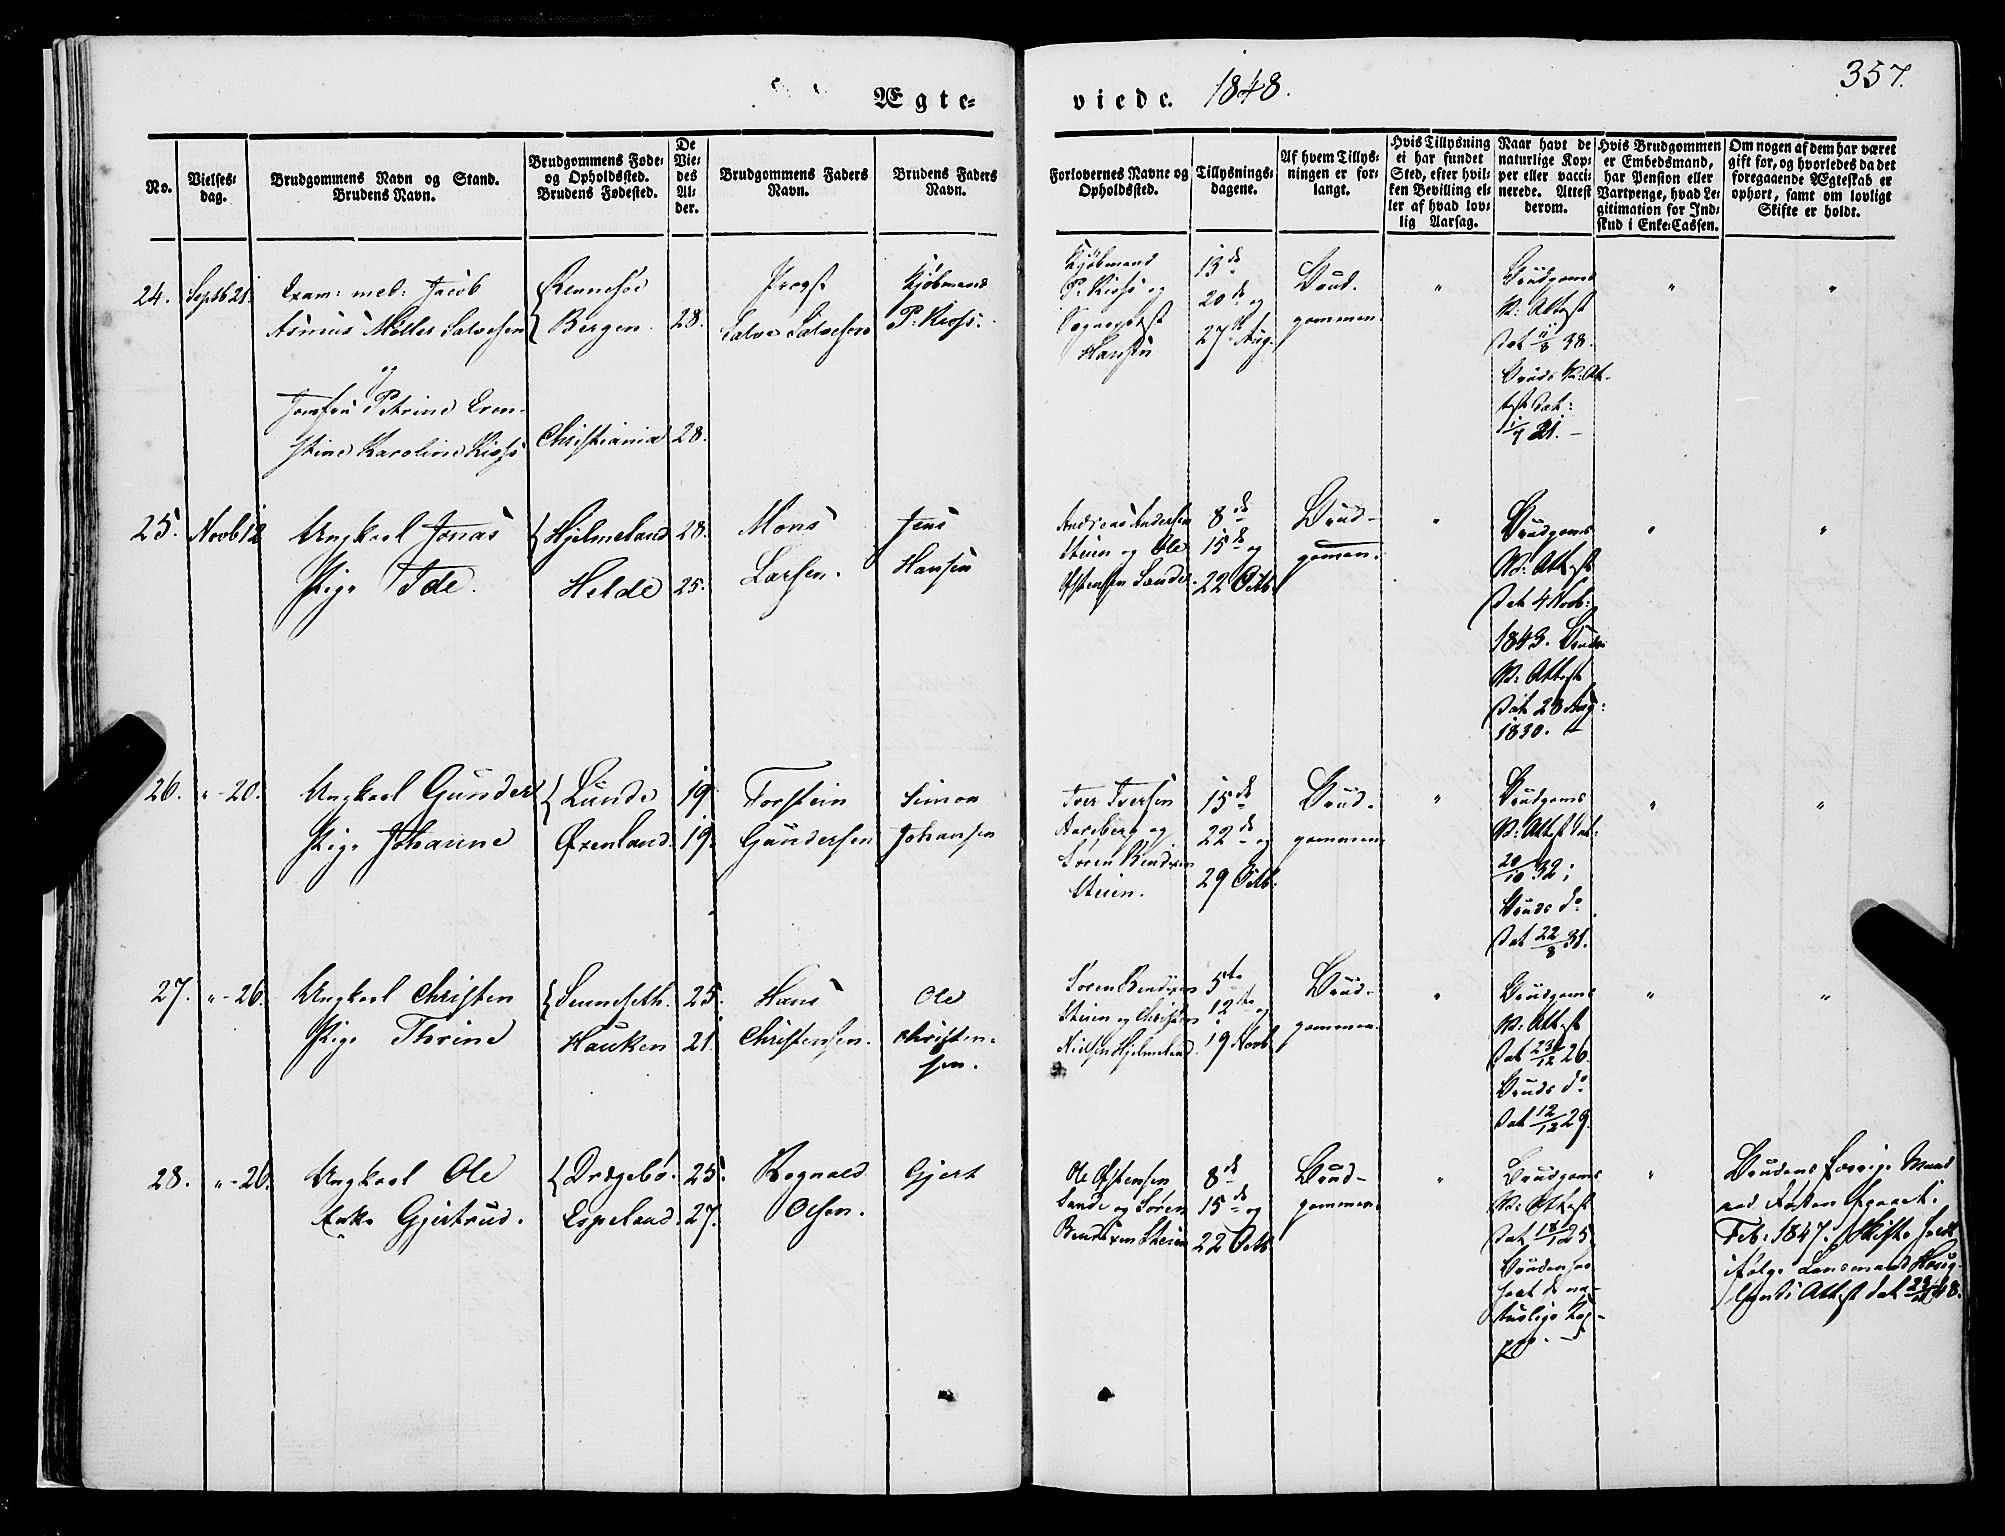 Ægte-
viede. 1848.
357.
No.
Vielses-
dag.
Brudgommens Navn og Stand.
Brudens Navn.
Brudgommens Føde-
og Opholdssted.
Brudens Fødested.
De
Vie-
des
Al-
der.
Brudgommens Faders
Navn.
Brudens Faders
Navn.
Forlovernes Navne og
Opholdssted.
Tillysnings-
dagene.
Af hvem Tillys-
ningen er for-
langt.
Hvis Tillysning
ei har fundet
Sted, efter hvil-
ken Bevilling el-
ler af hvad lov-
lig Aarsag.
Naar havt de
naturlige Kop-
per eller vacci-
nerede. Attest
derom.
Hvis Brudgommen
er Embedsmand,
har Pension eller
Vartpenge, hvad Le-
gitimation for Ind-
skud i Enke-Cassen.
Om nogen af dem har været
gift før, og hvorledes da det
foregaaende Ægteskab er
ophørt, samt om lovligt
Skifte er holdt.
24.
Septb 21.
Exam: med: Jacob
Asmus Müller Salvesen
og
Jomfru Petrine
Karoline
Rennesøe
Bergen.
Christiania
28.
28.
Provst
Salve Salvesen
Kjøbmand
Kjøbmand
og
Sogneprest
Hansen
13de
20de og
27de Aug.
Brud-
gommen.
"
Brudgoms
V: Attest
dat 38.
Bruds V: At-
test dat:
21.
"
"
25.
Novb 12
Ungkarl Jonas
Pige Ide.
Hjelmeland
Helde
28.
25.
Mons
Larsen.
Jens
Hansen
Andreas Andersen
Steien og Ole
Østensen Sande.
8de
15de og
22 Octb
Brud-
gomen.
"
Brudgoms
V: Attest
dat 4 Novb:
1843. Bruds
V: Attest
dat 28 Aug:
1830.
"
"
26.
" - 20.
Ungkarl Gunder
Pige Johanne
Lunde
Øxenland.
19
19.
Torstein
Gundersen
Simon
Johansen
Iver Iversen
og
Søren Bendixen
Steien.
15de
22de og
29 Octb:
Brud-
gommen
"
Brudgoms
V: Attest dat:
20/10 32;
Bruds do
dat 22/8 31.
"
"
27.
" - 26.
Ungkarl Christen
Pige Thrine
Hauken
25.
21.
Hans
Christensen.
Ole
Christen-
sen.
Søren Bendixen
Steien og Christen
Nielsen Hjelmeland.
5te
12te og
19 Novb
Brud-
gommen.
"
Brudgoms
V: Attest
dat 23/12 26.
Bruds do
dat 12/12 29.
"
"
28.
" - 26.
Ungkarl Ole
Enke Gjertrud.
Drægebø.
Espeland.
25.
27.
Regnald
Olsen.
Gjert
Ole Østensen
Sande og Søren
Bendixen Steien
8de
15de og
22 Octb
Brud-
gommen
"
Brudgoms
V: Attest
dat 18/12 25
Bruden har
havt de na-
turlige Kop-
per.
"
Brudens forrige Mand
Feb: 1847. Skifte holdt
ifølge Lensmand
Attest dat 48.